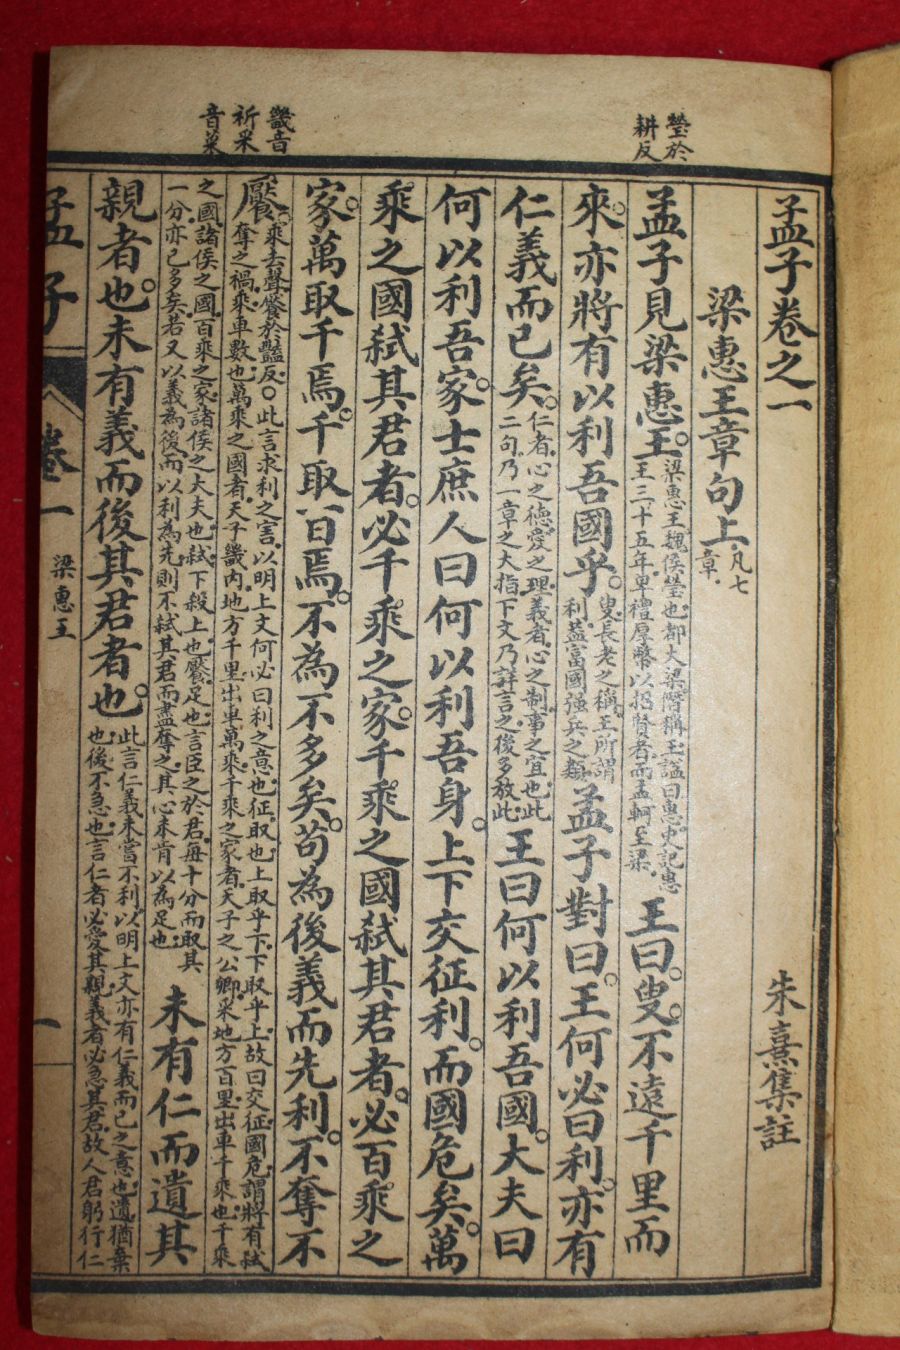 瑩於
耕反
畿音
祈采
音菜
孟子卷之一 朱熹集註
梁惠王章句上
凡七
章
孟子見梁惠王。
梁惠王魏侯瑩也都大梁僭稱王諡曰惠史記惠
王三十五年卑禮厚幣以招賢者而孟軻至梁
王曰。叟。不遠千里而
來。亦將有以利吾國乎。
叟長老之稱王所謂
利蓋富國强兵之類
孟子對曰。王何必曰利。亦有
仁義而已矣。
仁者心之德愛之理義者心之制事之宜也此
二句乃一章之大指下文乃詳言之後多放此
王曰何以利吾國。大夫曰
何以利吾家。士庶人曰何以利吾身。上下交征利。而國危矣。萬
乘之國弑其君者。必千乘之家。千乘之國弑其君者。必百乘之
家。萬取千焉。千取百焉。不為不多矣。苟為後義而先利。不奪不
饜。
乘去聲饜於豔反○此言求利之害以明上文何必曰利之意也征取也上取乎下下取乎上故曰交征國危謂將有弑
奪之禍乘車數也萬乘之國者天子畿内地方千里出車萬乘千乘之家者天子之公卿采地方百里出車千乘也千乘
之國諸侯之國百乘之家諸侯之大夫也弑下殺上也饜足也言臣之於君每十分而取其
一分亦已多矣若又以義為後而以利為先則不弑其君而盡奪之其心未肯以為足也
未有仁而遺其
親者也。未有義而後其君者也。
此言仁義未嘗不利以明上文亦有仁義而已之意也遺猶棄
也後不急也言仁者必愛其親義者必急其君故人君躬行仁
孟子
卷一
梁惠王
一